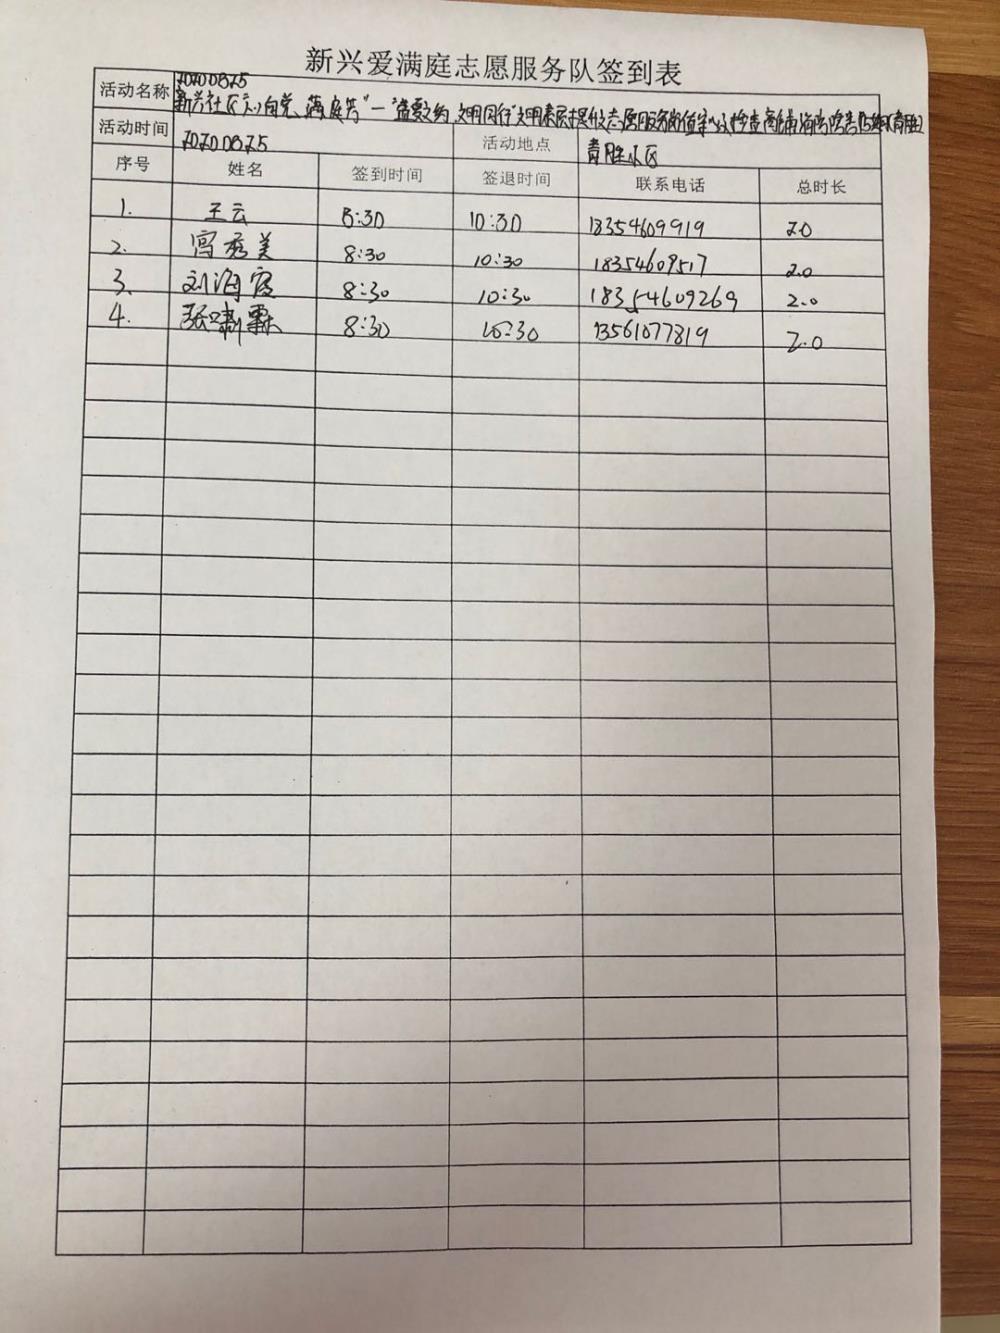 新兴爱满庭志愿服务队签到表
活动名称 20200825
新兴社区"心向党、满庭芳"一"盛夏之约,文明同行"文明素质提升志愿服务
活动时间 20200825 活动地点 青胜小区
序号 姓名 签到时间 签退时间 联系电话 总时长
1. 王云 8:30 10:30 18354609919 2.0
2. 宫秀美 8:30 10:30 18354609517 2.0
3. 刘海霞 8:30 10:30 18354609269 2.0
4. 张啸霖 8:30 10:30 13561077819 2.0